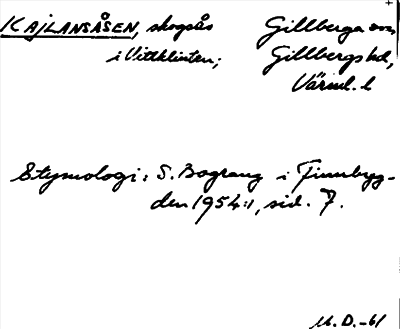 KAJLANSÅSEN, skogsås
i Vittklinten;
Gillberga sn,
Gillbergs hd,
Värml. l
Etymologi: S. Bograng i Finnbyg-
den 1954:1, sid. 7.
M. D. -61